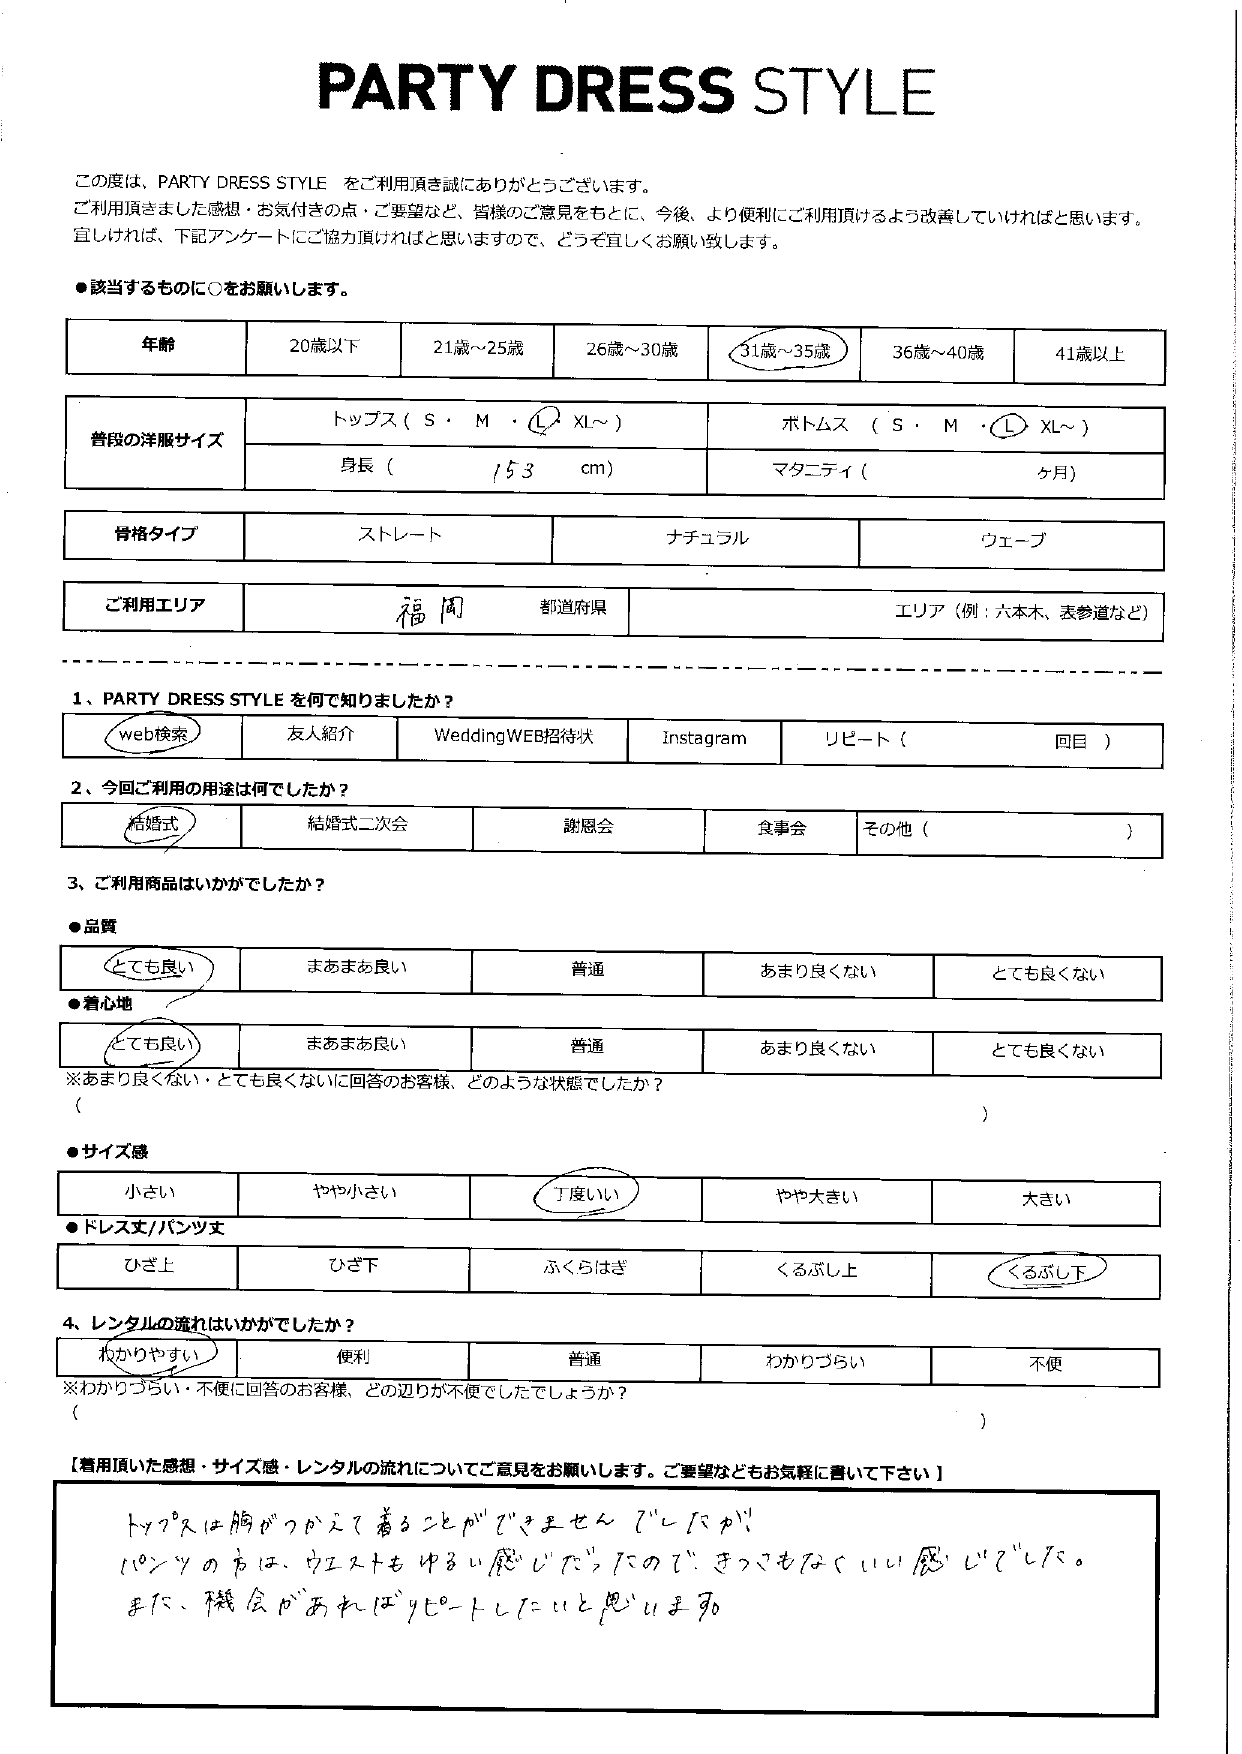 PARTY DRESS STYLE
この度は、PARTY DRESS STYLE をご利用頂き誠にありがとうございます。
ご利用頂きました感想・お気付きの点・ご要望など、皆様のご意見をもとに、今後、より便利にご利用頂けるよう改善していければと思います。
宜しければ、下記アンケートにご協力頂ければと思いますので、どうぞ宜しくお願い致します。
●該当するものに○をお願いします。
年齢 20歳以下 21歳～25歳 26歳～30歳 31歳～35歳 36歳～40歳 41歳以上
普段の洋服サイズ トップス ( S ・ M ・ L ・ XL～ ) ボトムス ( S ・ M ・ L ・ XL～ )
身長 ( 153 cm) マタニティ ( ケ月)
骨格タイプ ストレート ナチュラル ウェーブ
ご利用エリア 福岡 都道府県 エリア（例：六本木、表参道など）
1、PARTY DRESS STYLE を何で知りましたか？
web検索 友人紹介 WeddingWEB招待状 Instagram リピート（ 回目 ）
2、今回ご利用の用途は何でしたか？
結婚式 結婚式二次会 謝恩会 食事会 その他（ ）
3、ご利用商品はいかがでしたか？
●品質
とても良い まあまあ良い 普通 あまり良くない とても良くない
●着心地
とても良い まあまあ良い 普通 あまり良くない とても良くない
※あまり良くない・とても良くないに回答のお客様、どのような状態でしたか？
（ ）
●サイズ感
小さい やや小さい 丁度いい やや大きい 大きい
●ドレス丈/パンツ丈
ひざ上 ひざ下 ふくらはぎ くるぶし上 くるぶし下
4、レンタルの流れはいかがでしたか？
わかりやすい 便利 普通 わかりづらい 不便
※わかりづらい・不便に回答のお客様、どの辺りが不便でしたでしょうか？
（ ）
【着用頂いた感想・サイズ感・レンタルの流れについてご意見をお願いします。ご要望などもお気軽に書いて下さい】
トップスは胸がつかえて着ることができませんでしたが、
パンツの方は、ウエストもゆるい感じだったので、きつさもなくいい感じでした。
また、機会があればリピートしたいと思います。